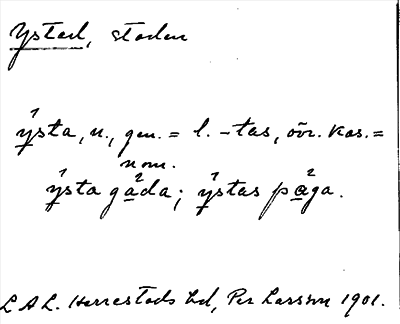 Ystad, staden
ýsta, n., gen. = l. -tas, övr. kas. =
nom.
ýsta gada; ýstas paga.
L A L. Herrestads hd, Per Larsson 1901.